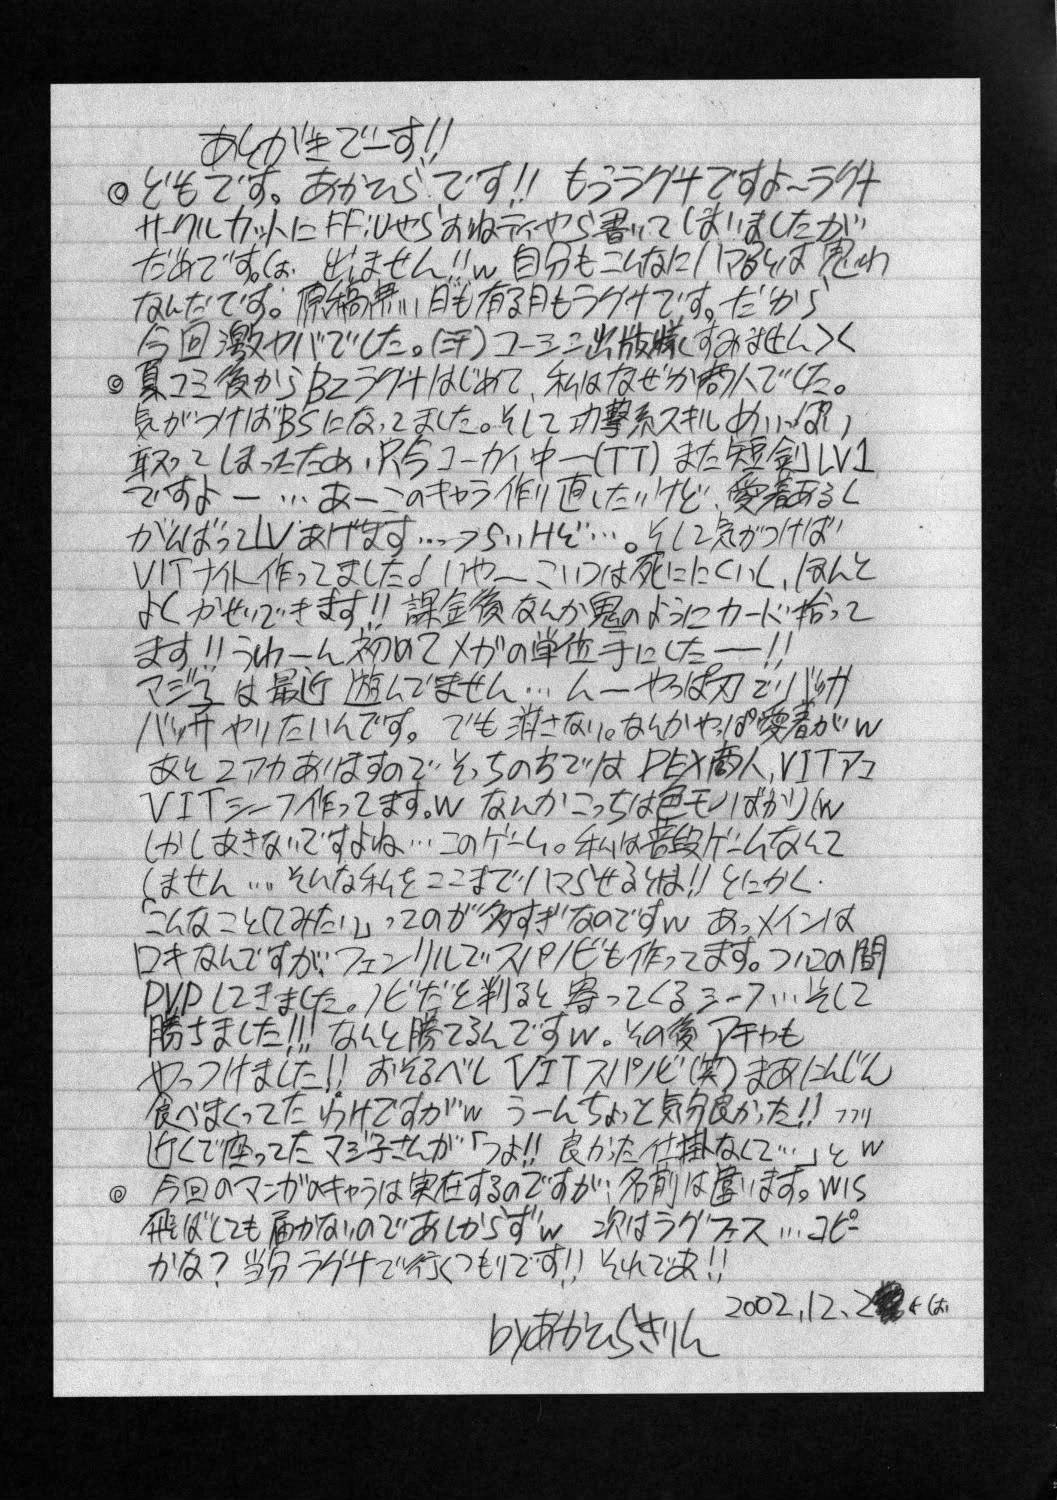 あとがきでーす!!
◎ どもです。あかひらです!! もうラグナですよ〜ラグナ
サークルカットにFFⅪやらおねティやら書いてしまいましたが
だめです。は、出ません!!w 自分もこんなにハマるとは思わ
なんだです。原稿無い月も有る月もラグナです。だから
今回激ヤバでした。(汗) コーシン出版様すみません><
◎ 夏コミ後からβ2ラグナはじめて、私はなぜか商人でした。
気がつけばBSになってました。そして攻撃系スキルめいっぱい
取ってしまったため、只今コーカイ中〜(TT) また短剣LV1
ですよー…あーこのキャラ作り直したいけど、愛着あるし
がんばってLVあげます…つらいけど…。そして気がつけば
VITナイト作ってました♪ いや〜こいつは死ににくいし、ほんと
よくかせいできます!! 課金後なんか鬼のようにカード拾って
ます!! うわーん初めてメガの単位手にしたー!!
マジ子は最近遊んでません… んーやっぱ刃でバッサ
バッサやりたいんです。でも消さない。なんかやっぱ愛着がw
あと2アカありますので、そっちの方ではDEX商人、VITアコ
VITシーフ作ってます。w なんかこっちは色モノばかり(w
しかしあきないですよね…このゲーム。私は普段ゲームなんて
しません…。そんな私をここまでハマらせるとは!! とにかく
「こんなことしてみたい」ってのが多すぎなのですw あっメインは
ロキなんですが、フェンリルでスパノビも作ってます。ついこの間
PVPしてきました。ノビだと判ると寄ってくるシーフ…そして
勝ちました!!! なんと勝てるんですw。その後アチャも
やっつけました!! おそるべしVITスパノビ(笑) まあにんじん
食べまくってたわけですがw うーんちょっと気分良かった!!
近くで座ってたマジ子さんが「つよ!! 良かった仕掛なくて…」とw
◎ 今回のマンガのキャラは実在するのですが、名前は違います。WIS
飛ばしても届かないのであしからずw 次はラグフェス…コピー
かな? 当分ラグナで行くつもりです!! それであ!!
2002.12.2
byあかひらきりん